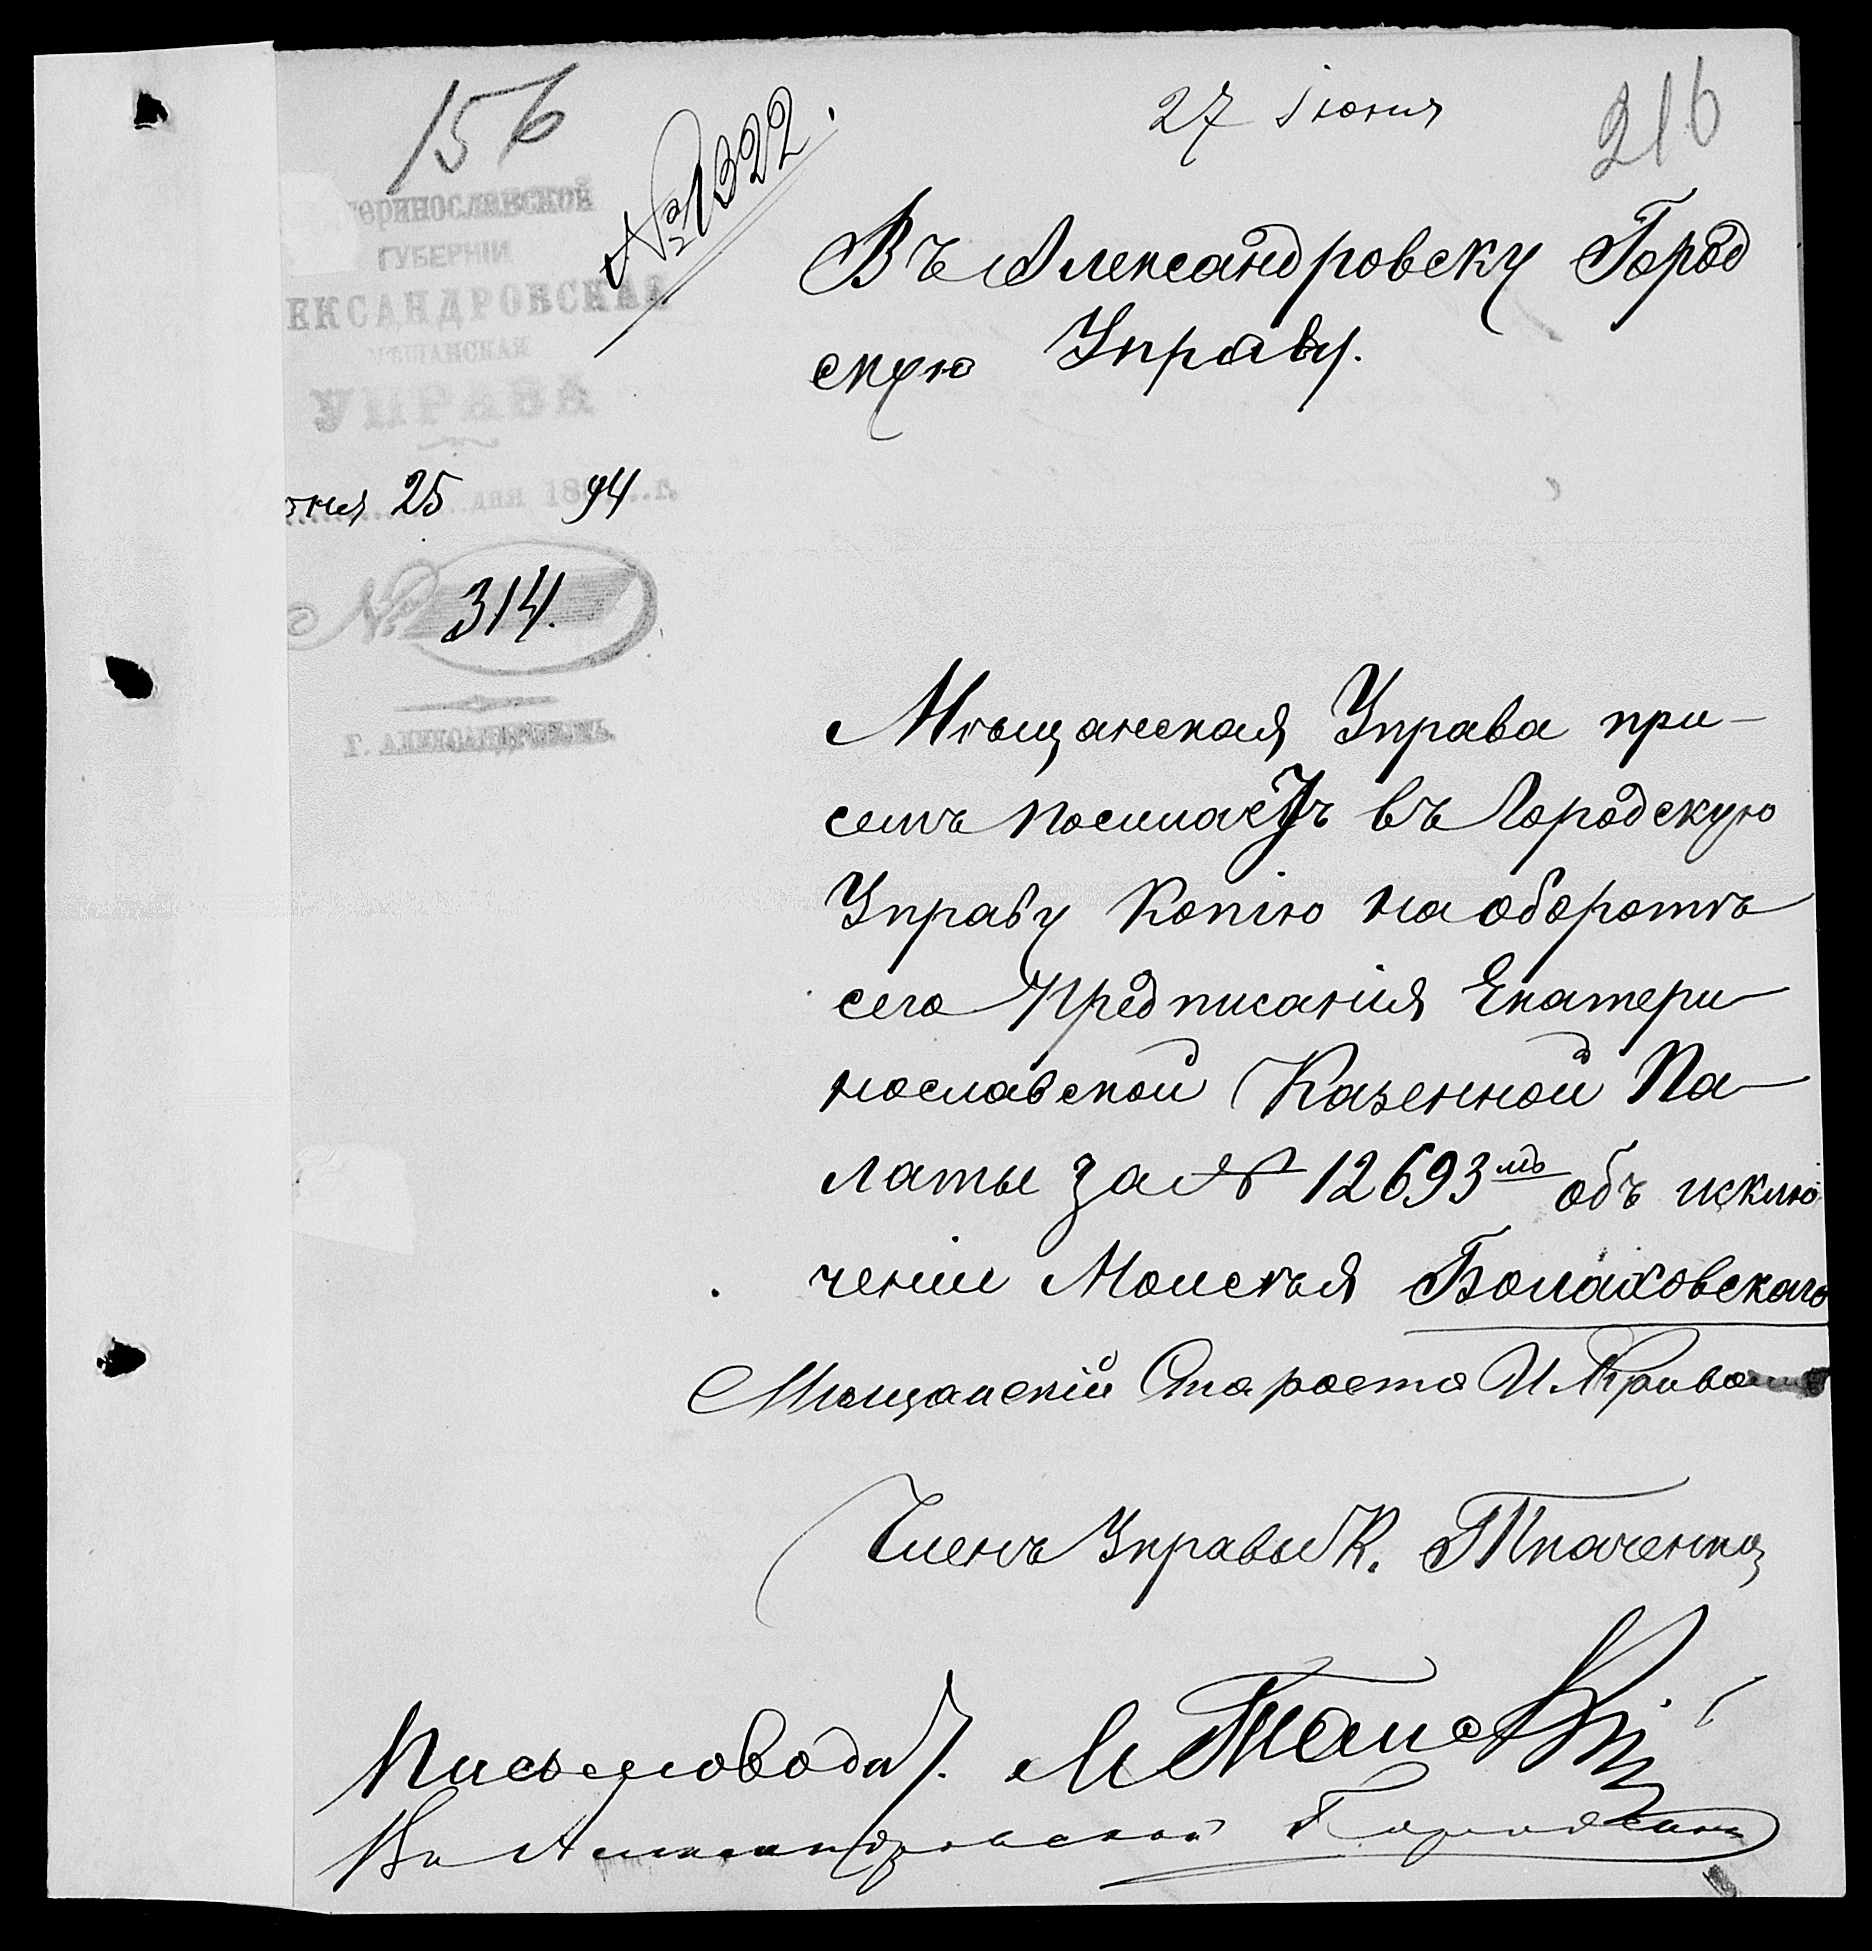 156
№ 1322.
27 Іюня
216
теринославской
ГУБЕРНІИ
ЕКСАНДРОВСКАЯ
МѢЩАНСКАЯ
УПРАВА
юня 25 дня 1894 г.
№ 314.
Г. АЛЕКСАНДРОВСКЪ.
Въ Александровску Город
скую Управу.
Мѣщанская Управа при-
семъ посылаетъ въ Городскую
Управу Копію на оборотѣ
сего Предписанія Екатери-
нославской Казенной Па-
латы за № 12693мъ объ исклю
ченіи Моисѣя
Мѣщанскій Староста И.
Членъ Управы К. Ткаченко
Письмоводит. М
Александровской